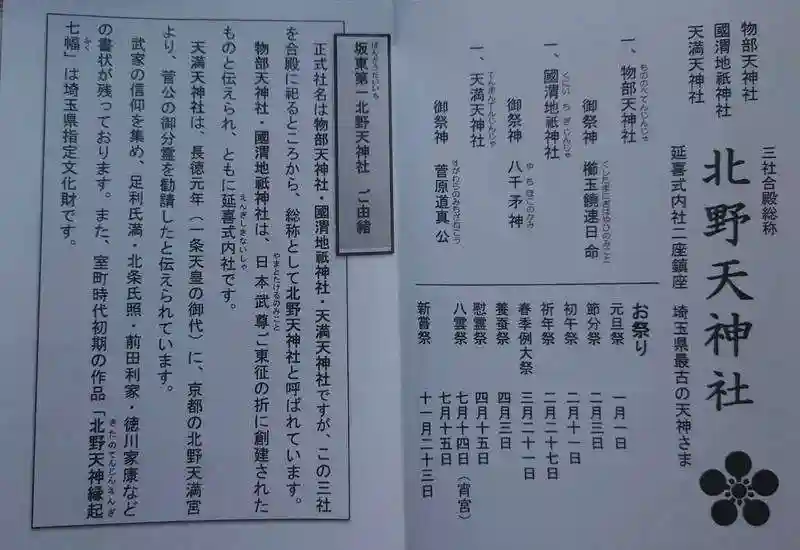 物部天神社
國渭地祇神社
天満天神社
三社合殿総称
北野天神社
延喜式内社二座鎮座 埼玉県最古の天神さま
一、物部天神社
もののべてんじんじゃ
御祭神 櫛玉饒速日命
くしたまにぎはやひのみこと
一、國渭地祇神社
くにいちぎじんじゃ
御祭神 八千矛神
やちほこのかみ
一、天満天神社
てんまんてんじんじゃ
御祭神 菅原道真公
すがわらのみちざねこう
お祭り
元旦祭 一月一日
節分祭 二月三日
初午祭 二月十一日
祈年祭 二月二十七日
春季例大祭 三月二十一日
養蚕祭 四月三日
慰霊祭 四月十五日
八雲祭 七月十四日(宵宮)
七月十五日
新嘗祭 十一月二十三日
坂東第一北野天神社 ご由緒
ばんどうだいいち
正式社名は物部天神社・國渭地祇神社・天満天神社ですが、この三社
を合殿に祀るところから、総称として北野天神社と呼ばれています。
物部天神社・國渭地祇神社は、日本武尊ご東征の折に創建された
やまとたけるのみこと
ものと伝えられ、ともに延喜式内社です。
えんぎしきないしゃ
天満天神社は、長徳元年(一条天皇の御代)に、京都の北野天満宮
より、菅公の御分霊を勧請したと伝えられています。
武家の信仰を集め、足利氏満・北条氏照・前田利家・徳川家康など
の書状が残っております。また、室町時代初期の作品「北野天神縁起
きたのてんじんえんぎ
七幅」は埼玉県指定文化財です。
ふく